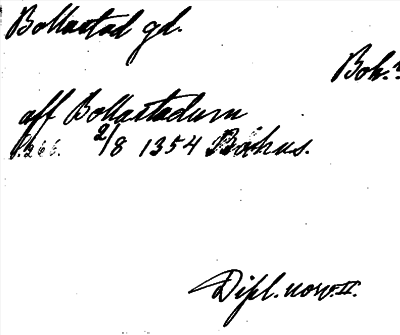 Bollastad gd.
Boh.
aff Bollastadum
s. 266. 2/8 1354 Båhus.
Dipl. norv. II.